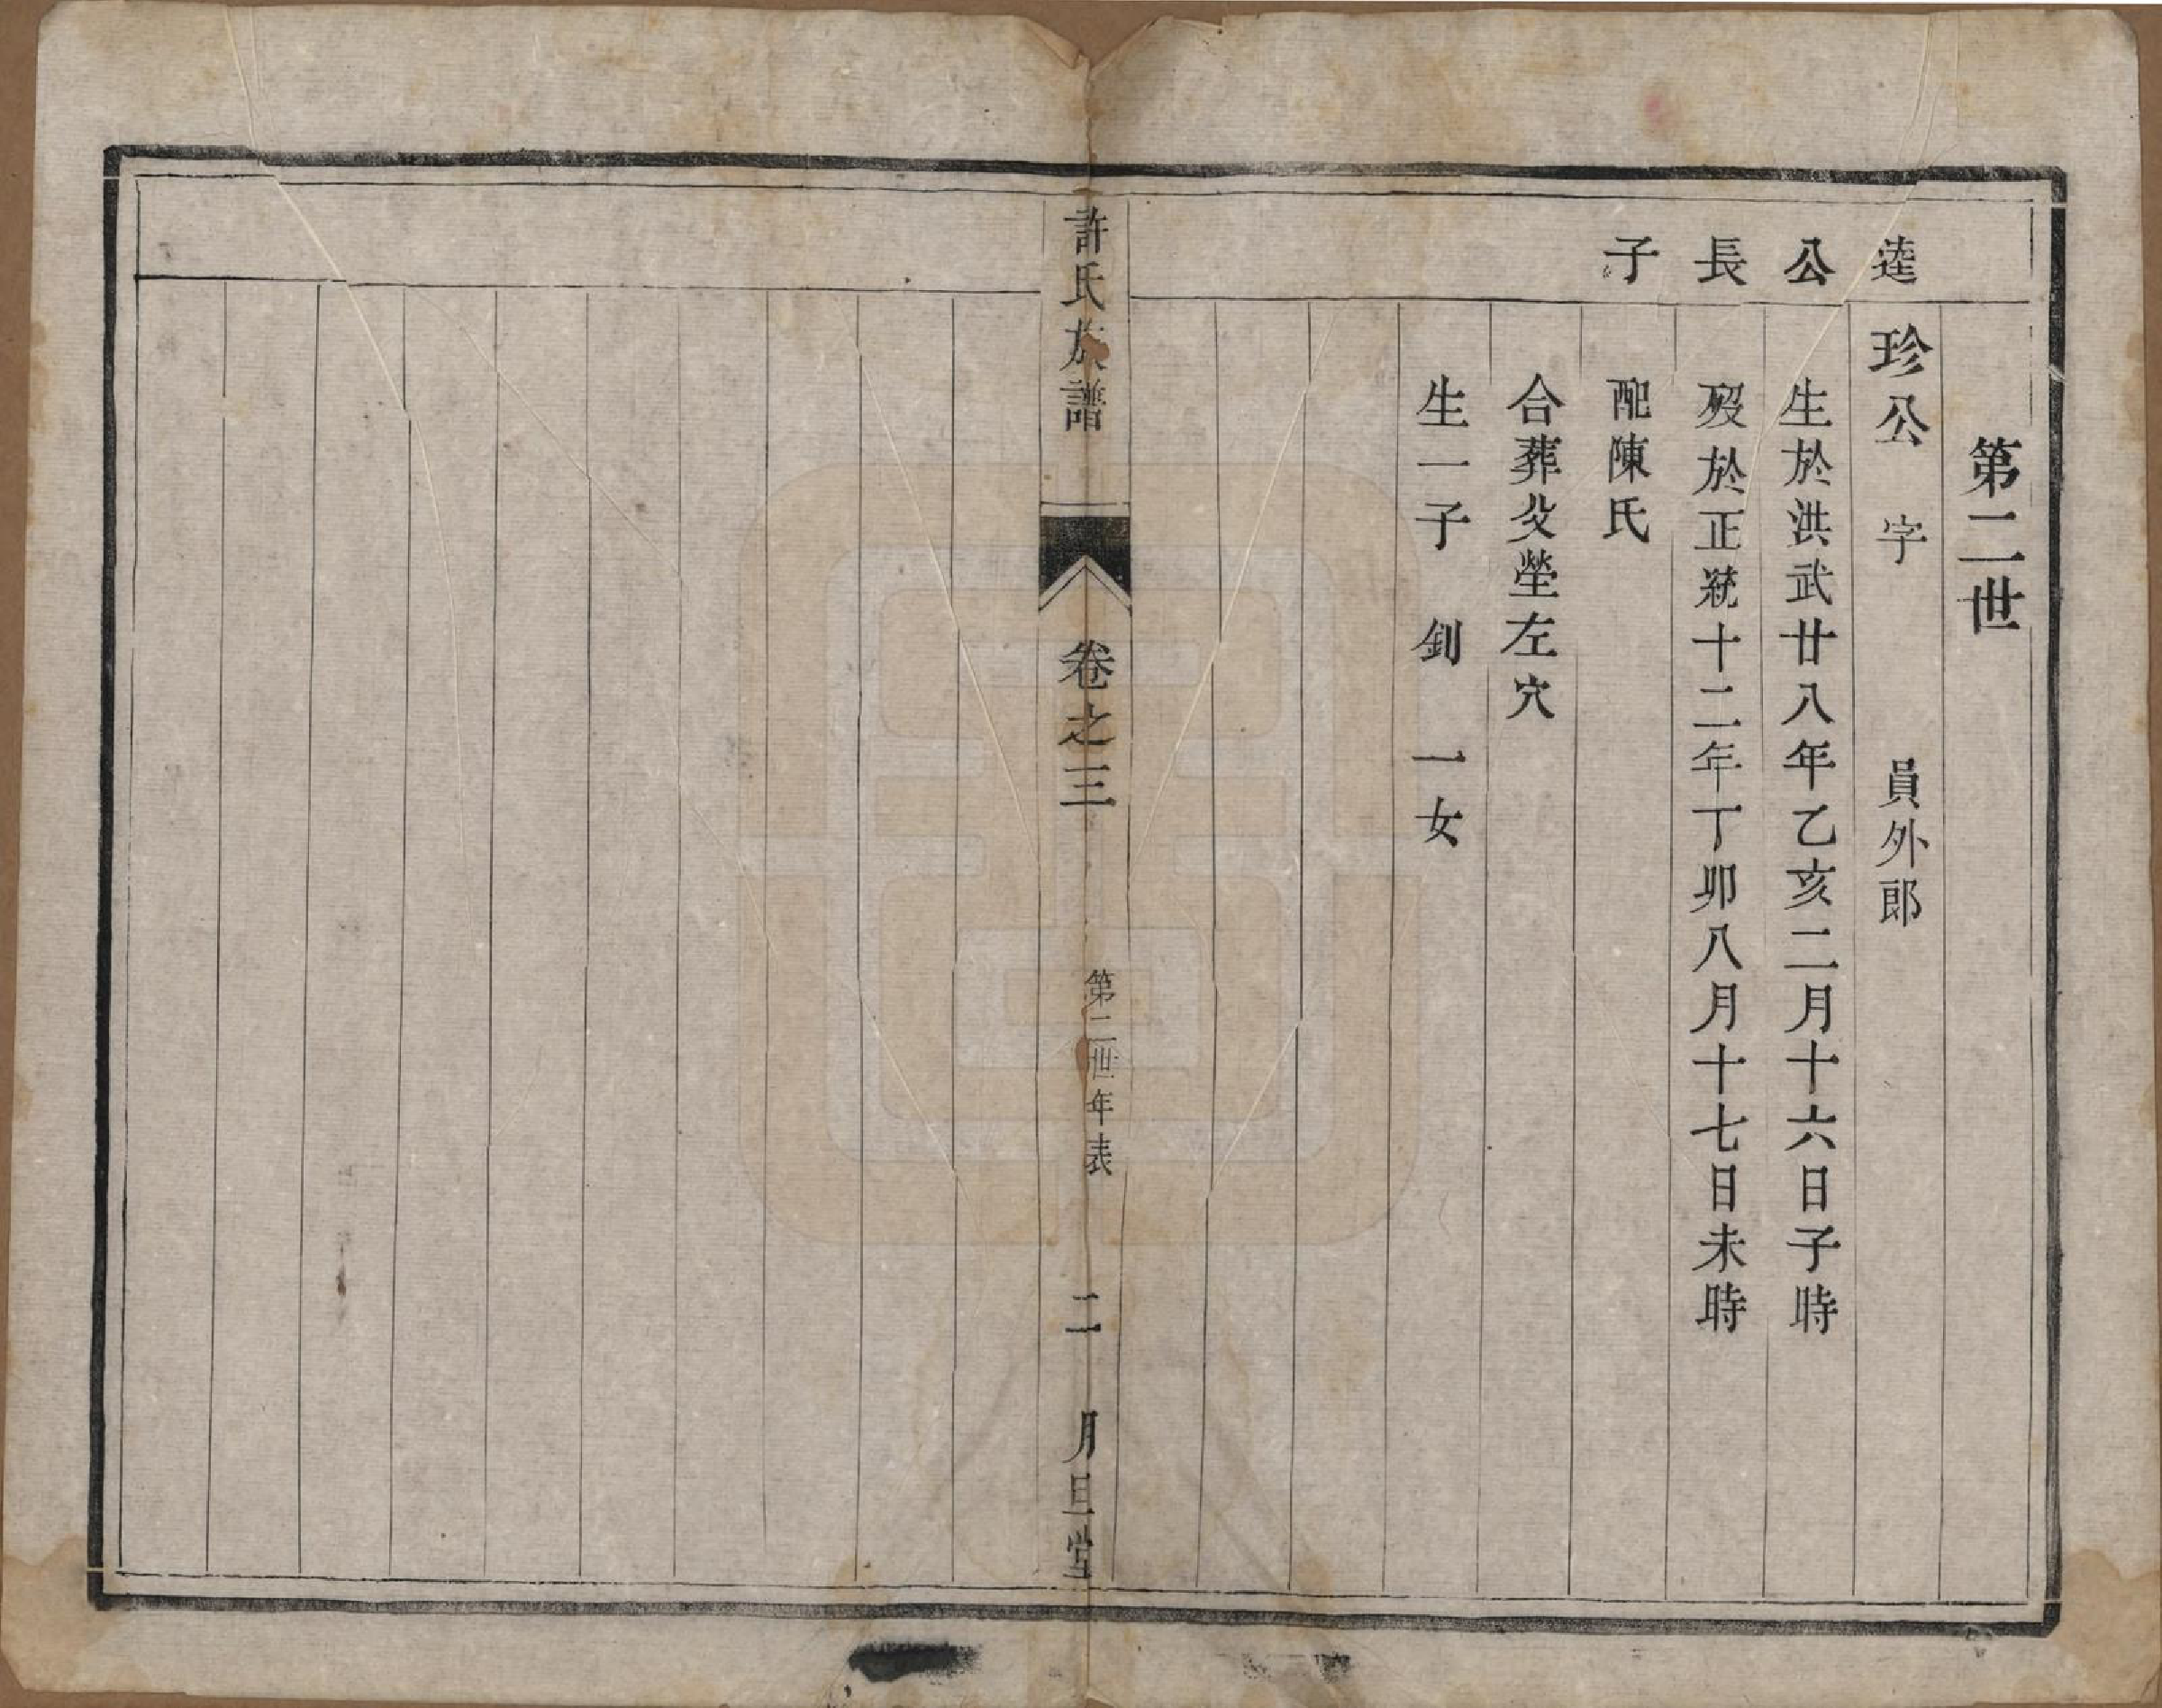 第二世
達公長子
珍公　字　員外郎
生於洪武廿八年乙亥二月十六日子時
歿於正統十二年丁卯八月十七日未時
配陳氏
合葬父塋左穴
生一子　釗　一女
許氏族譜　卷之三　第二世年表　二　月旦堂